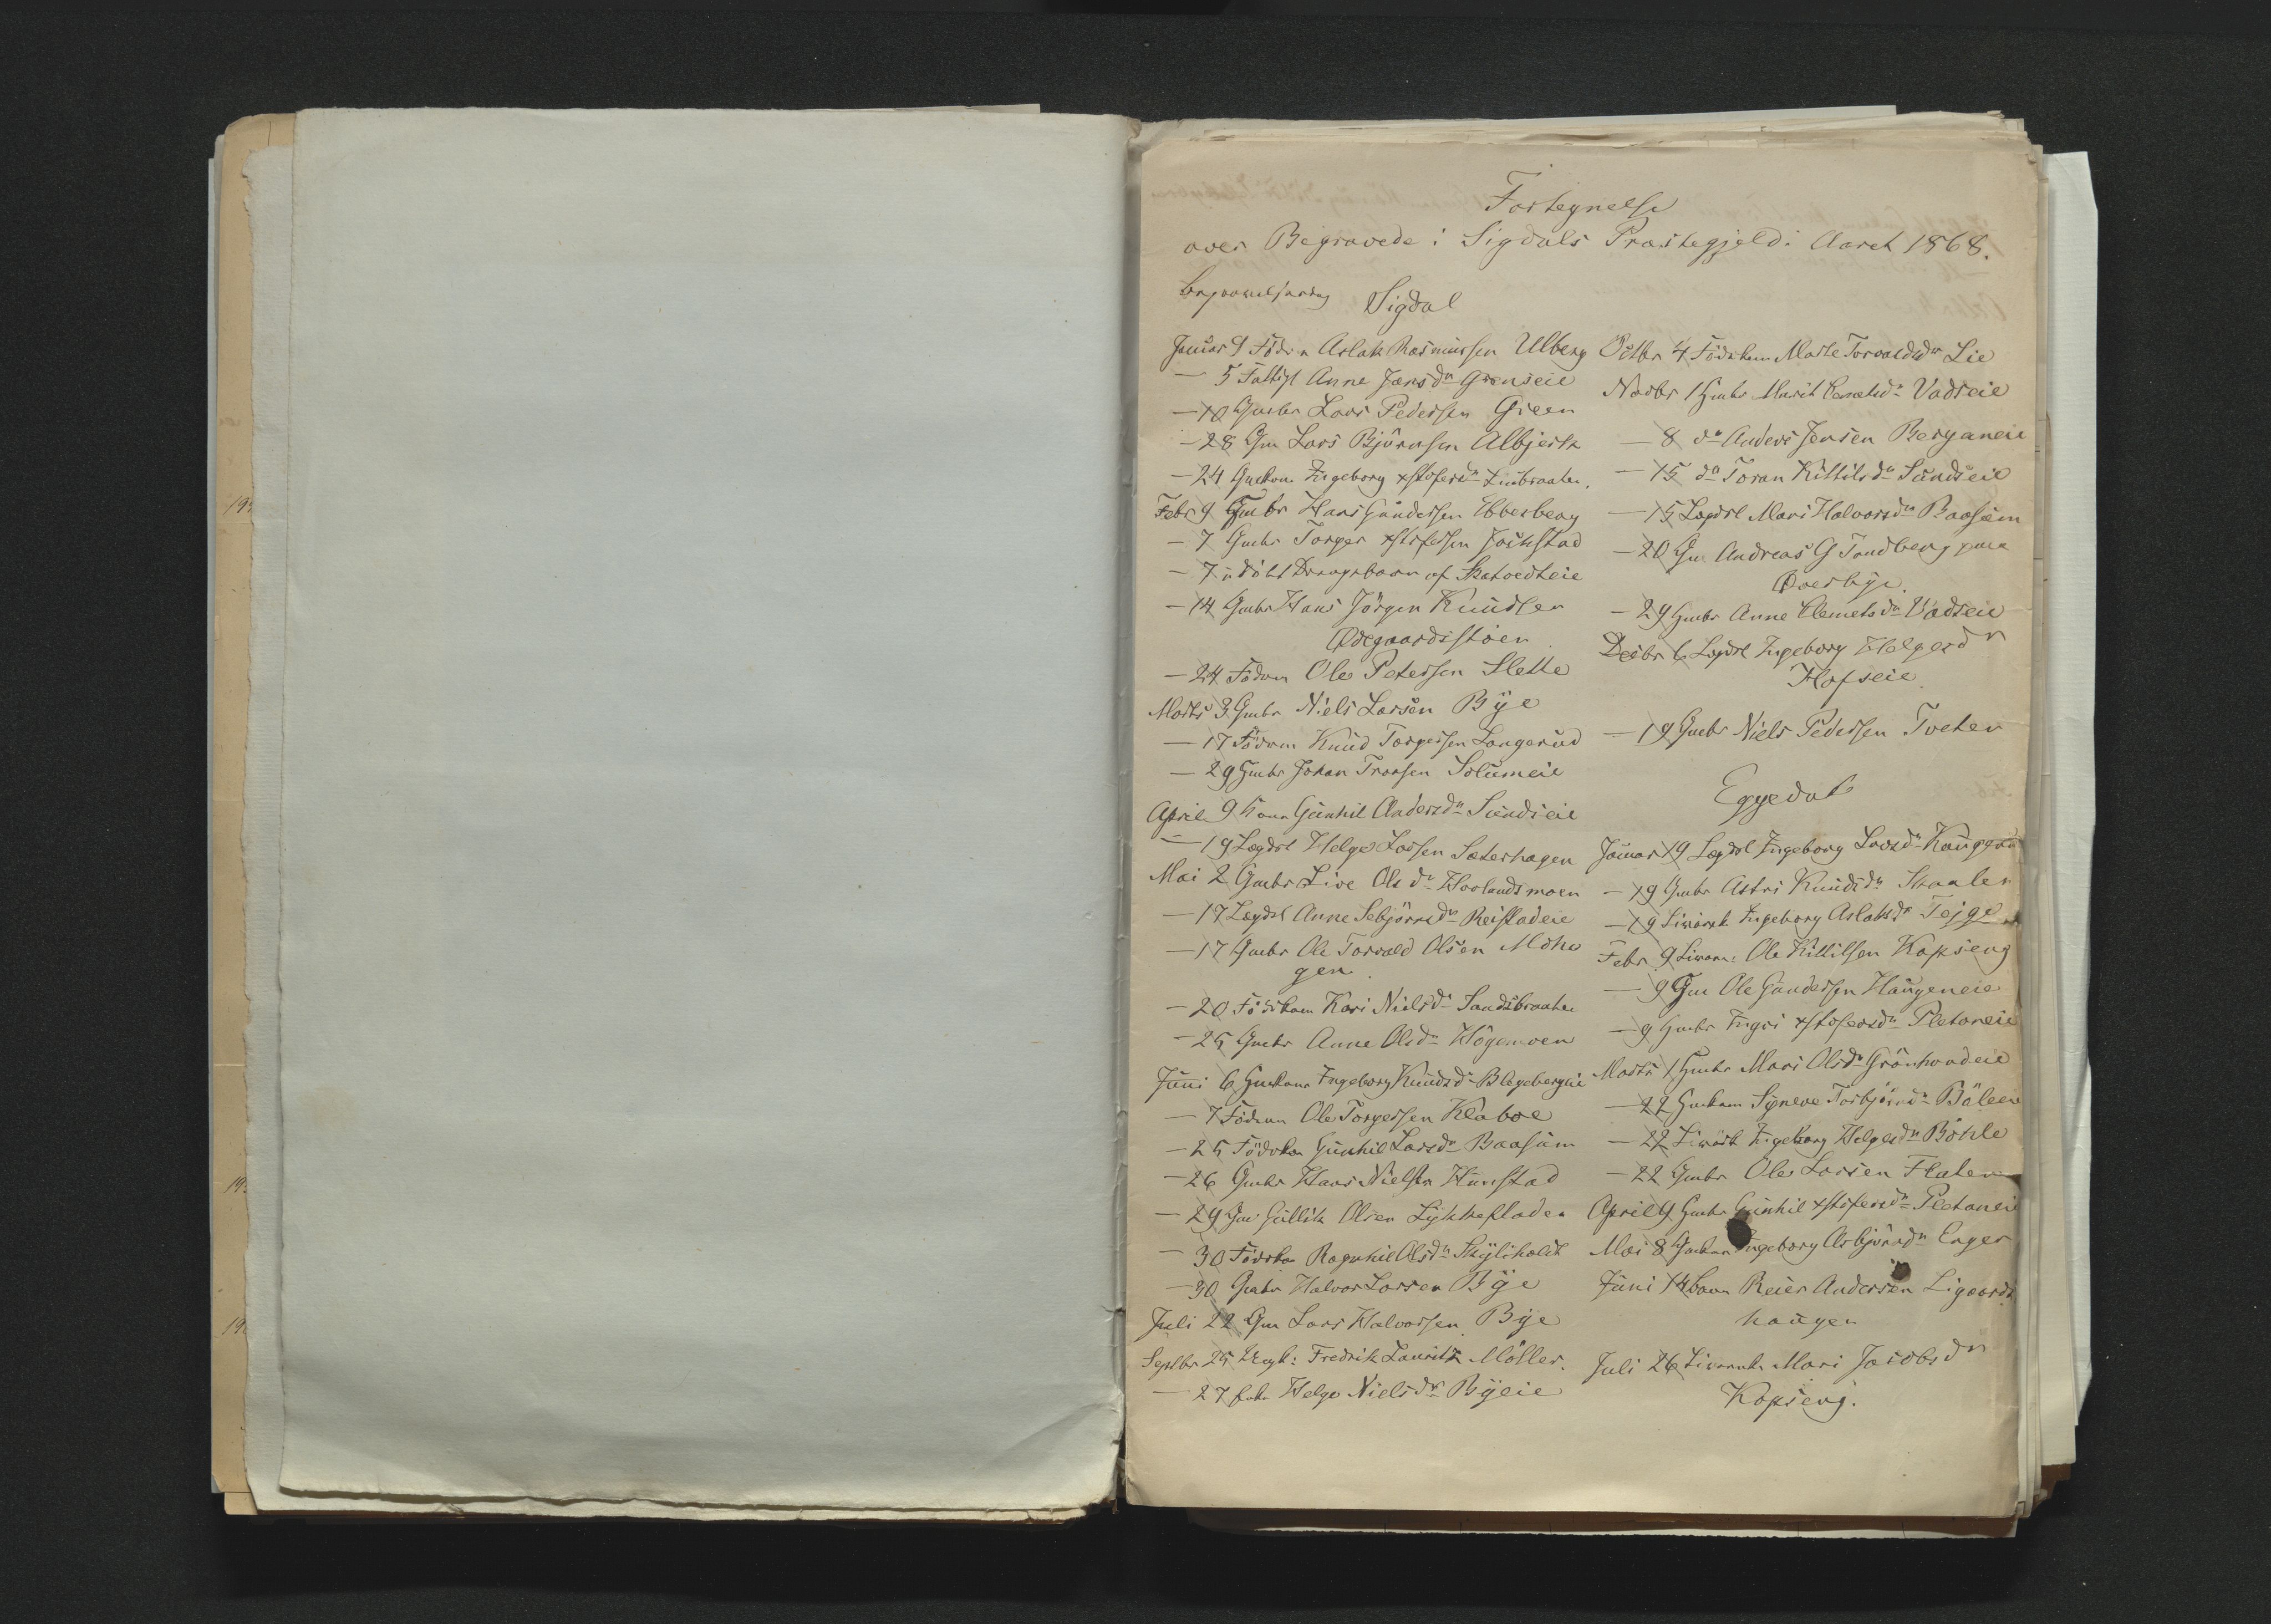 Fortegnelse
over Begravede i Sigdals Præstegjeld i Aaret 1868.
Sigdal
Januar 9 Föder Aslak Rasmussen Ulberg
— 5 Fattigl Anne Jansdr Grenseie
— 10 Gmbr Lars Pedersen Green
— 28 Gm Lars Björnsen Albjerk
— 24 Gmkone Ingeborg xstofersdr
Febr 9 Gmbr Hans Gundersen Ebbesberg
— 7 Gmbr Torger xstofersen
— 7 udöbt Drengebarn af
— 14 Gmbr Hans Jörgen Knudsen
Ødegaardsstöen
— 24 Födrm Ole Petersen Slette
Marts 3 Gmbr Niels Larsen Bye
— 17 Födrm Knud Torgersen Langerud
— 29 Gmbr Johan Tronsen Solumeie
April 9 Gunhil Andersdr Sundseie
— 19 Lægdsl Helge Larsen Sæterhagen
Mai 2 Gmbr Live Olsdr Hovlandsmoen
— 17 Lægdsl Anne Sebjörnsdr Reistadeie
— 17 Gmbr Ole Torvald Olsen Mohn
gen
— 20 Födrkone Kari Nielsdr Sandsbraaten
— 25 Gmbr Anne Olsdr Högemoen
Juni 6 Gmkone Ingeborg Knudsdr
— 7 Födrm Ole Torgersen Kleboe
— 25 Födrkone Gunhil Larsdr Baasum
— 26 Gmbr Hans Nielsen Hunstad
— 29 Gm Gullik Olsen Lykkefladen
— 30 Födrkone Ragnhil Olsdr
— 30 Gmbr Halvor Larsen Bye
Juli 22 Gm Lars Halvorsen Bye
Septbr 25 Fredrik Lauritz Möller.
— 27 Helge Nielsdr Byeie
Octbr 4 Födrkone Marte Torvaldsdr Lie
Novbr 1 Gmbr Marit Vadseie
— 8 do Anders Jensen Berganeie
— 15 do Toran Kittilsdr Sundseie
— 15 Lægdsl Mari Halvorsdr Baasum
— 20 Gm Andreas G Tandberg paa
Overbye.
— 29 Gmbr Anne Clemetsdr Vadseie
Decbr 6 Lægdsl Ingeborg Helgesdr
Hofseie
— 19 Gmbr Niels Pedersen Tveten
Eggedal
Januar 19 Lægdsl Ingeborg Larsdr
— 19 Gmbr Astri Knudsdr Skaalen
— 19 Ingeborg Aslaksdr
Febr 9 Ole Kittilsen Kopseng
— 9 Gm Ole Gundersen Haugeneie
— 9 Gmbr Ingri xstofersdr Pletaneie
Marts 1 Gmbr Mari Olsdr Grönhovdeie
— 22 Gmkone Syneve Torbjörnsdr
— 22 Ingeborg Helgesdr Böhle
— 22 Gmbr Ole Larsen Flaten
April 9 Gmbr Gunhil xstofersdr Pletaneie
Mai 8 Gmkone Ingeborg Asbjörnsdr Enger
Juni 14 Reier Andersen Ligaards
haugen
Juli 26 Mari Jacobsdr
Kopseng.